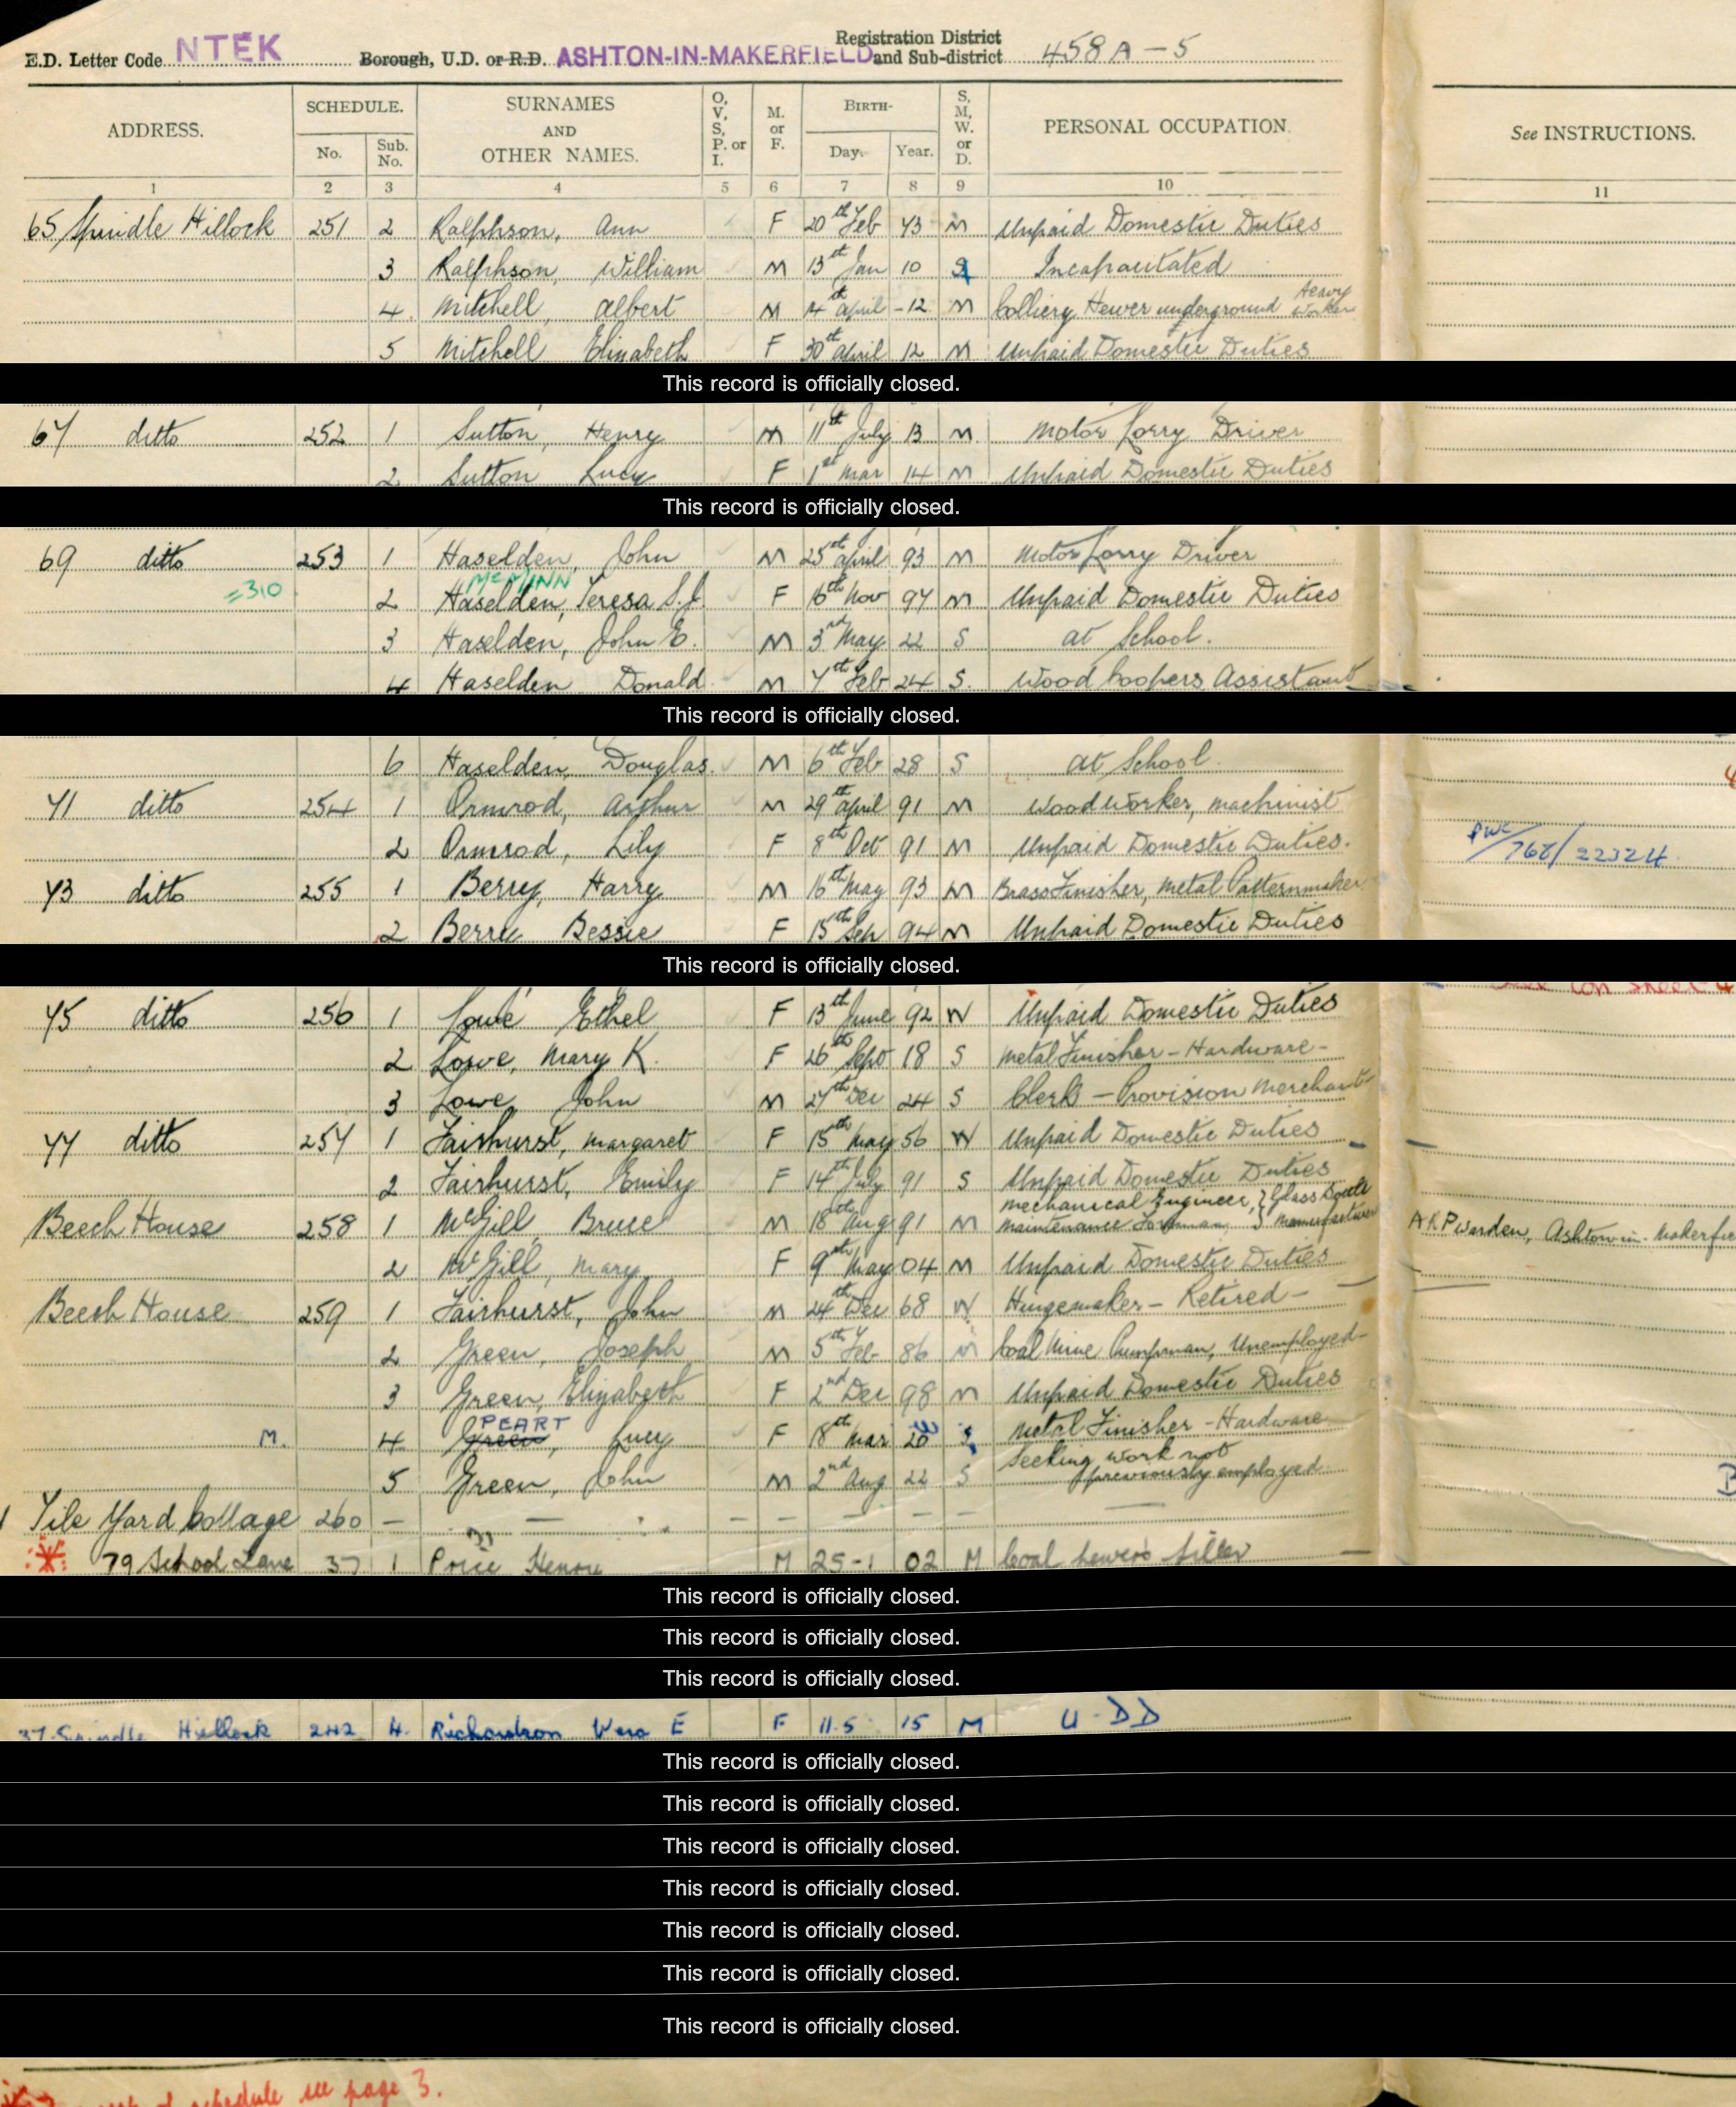 E.D. Letter Code NTEK Borough, U.D. or R.D. ASHTON-IN-MAKERFIELD Registration District and Sub-district 458A-5
ADDRESS. SCHEDULE. No. Sub. No. SURNAMES AND OTHER NAMES. O, V, S, P. or I. M. or F. BIRTH- Day. Year. S, M, W. or D. PERSONAL OCCUPATION. See INSTRUCTIONS.
1 2 3 4 5 6 7 8 9 10 11
65 Spindle Hillock 251 2 Ralphson, Ann F 20th Feb 73 M Unpaid Domestic Duties
3 Ralphson, William M 13th Jan 10 S Incapacitated
4 Mitchell, Albert M 4th April -12 M Colliery Hewer underground Heavy Worker
5 Mitchell Elizabeth F 30th April 12 M Unpaid Domestic Duties
This record is officially closed.
67 ditto 252 1 Sutton, Henry M 11th July 13 M. Motor Lorry Driver
2 Sutton Lucy F 1st Mar 14 M Unpaid Domestic Duties
This record is officially closed.
69 ditto 253 1 Haselden, John M 25th April 93 M Motor Lorry Driver
McMINN
=310 2 Haselden, Teresa S.J. F 16th Nov 97 M Unpaid Domestic Duties
3 Haselden, John E. M 3rd May 22 S at School.
4 Haselden Donald. M 7th Feb 24 S. Wood Coopers Assistant
This record is officially closed.
6 Haselden, Douglas. M 6th Feb 28 S at School.
71 ditto 254 1 Ormrod, Arthur M 29th April 91 M Woodworker, machinist
2 Ormrod, Lily F 8th Oct 91 M Unpaid Domestic Duties. 768/22324
73 ditto 255 1 Berry, Harry M 16th May 93 M Brass Finisher, Metal Patternmaker
2 Berry Bessie F 15th Sep 94 M Unpaid Domestic Duties
This record is officially closed.
75 ditto 256 1 Lowe Ethel F 13th June 92 W Unpaid Domestic Duties
2 Lowe, Mary K. F 26th Sept 18 S Metal Finisher - Hardware -
3 Lowe John M 27th Dec 24 S Clerk - Provision Merchant
77 ditto 257 1 Fairhurst, Margaret F 15th May 56 W Unpaid Domestic Duties
2 Fairhurst, Emily F 14th July 91 S Unpaid Domestic Duties
Beech House 258 1 McGill, Bruce M 18th Aug 91 M Mechanical Engineer, Maintenance Foreman } Glass Bottle Manufacturer ARP Warden, Ashton-in-Makerfie
2 McGill, Mary F 9th May 04 M Unpaid Domestic Duties
Beech House 259 1 Fairhurst, John M 24th Dec 68 W Hingemaker - Retired -
2 Green, Joseph M 5th Feb 86 M Coal Mine Pumpman, Unemployed
3 Green, Elizabeth F 2nd Dec 98 M Unpaid Domestic Duties
PEART
M. 4 Green, Lucy F 18th Mar 20 S Metal Finisher - Hardware
5 Green, John M 2nd Aug 22 S Seeking work not previously employed.
1 Tile Yard Cottage 260 - - - - - - -
79 School Lane 37 1 Price Henry M 25-1 02 M Coal hewers filler
This record is officially closed.
This record is officially closed.
This record is officially closed.
37 Spindle Hillock 242 4. Richardson Vera E F 11.5 15 M U.D.D
This record is officially closed.
This record is officially closed.
This record is officially closed.
This record is officially closed.
This record is officially closed.
This record is officially closed.
This record is officially closed.
of schedule see page 3.